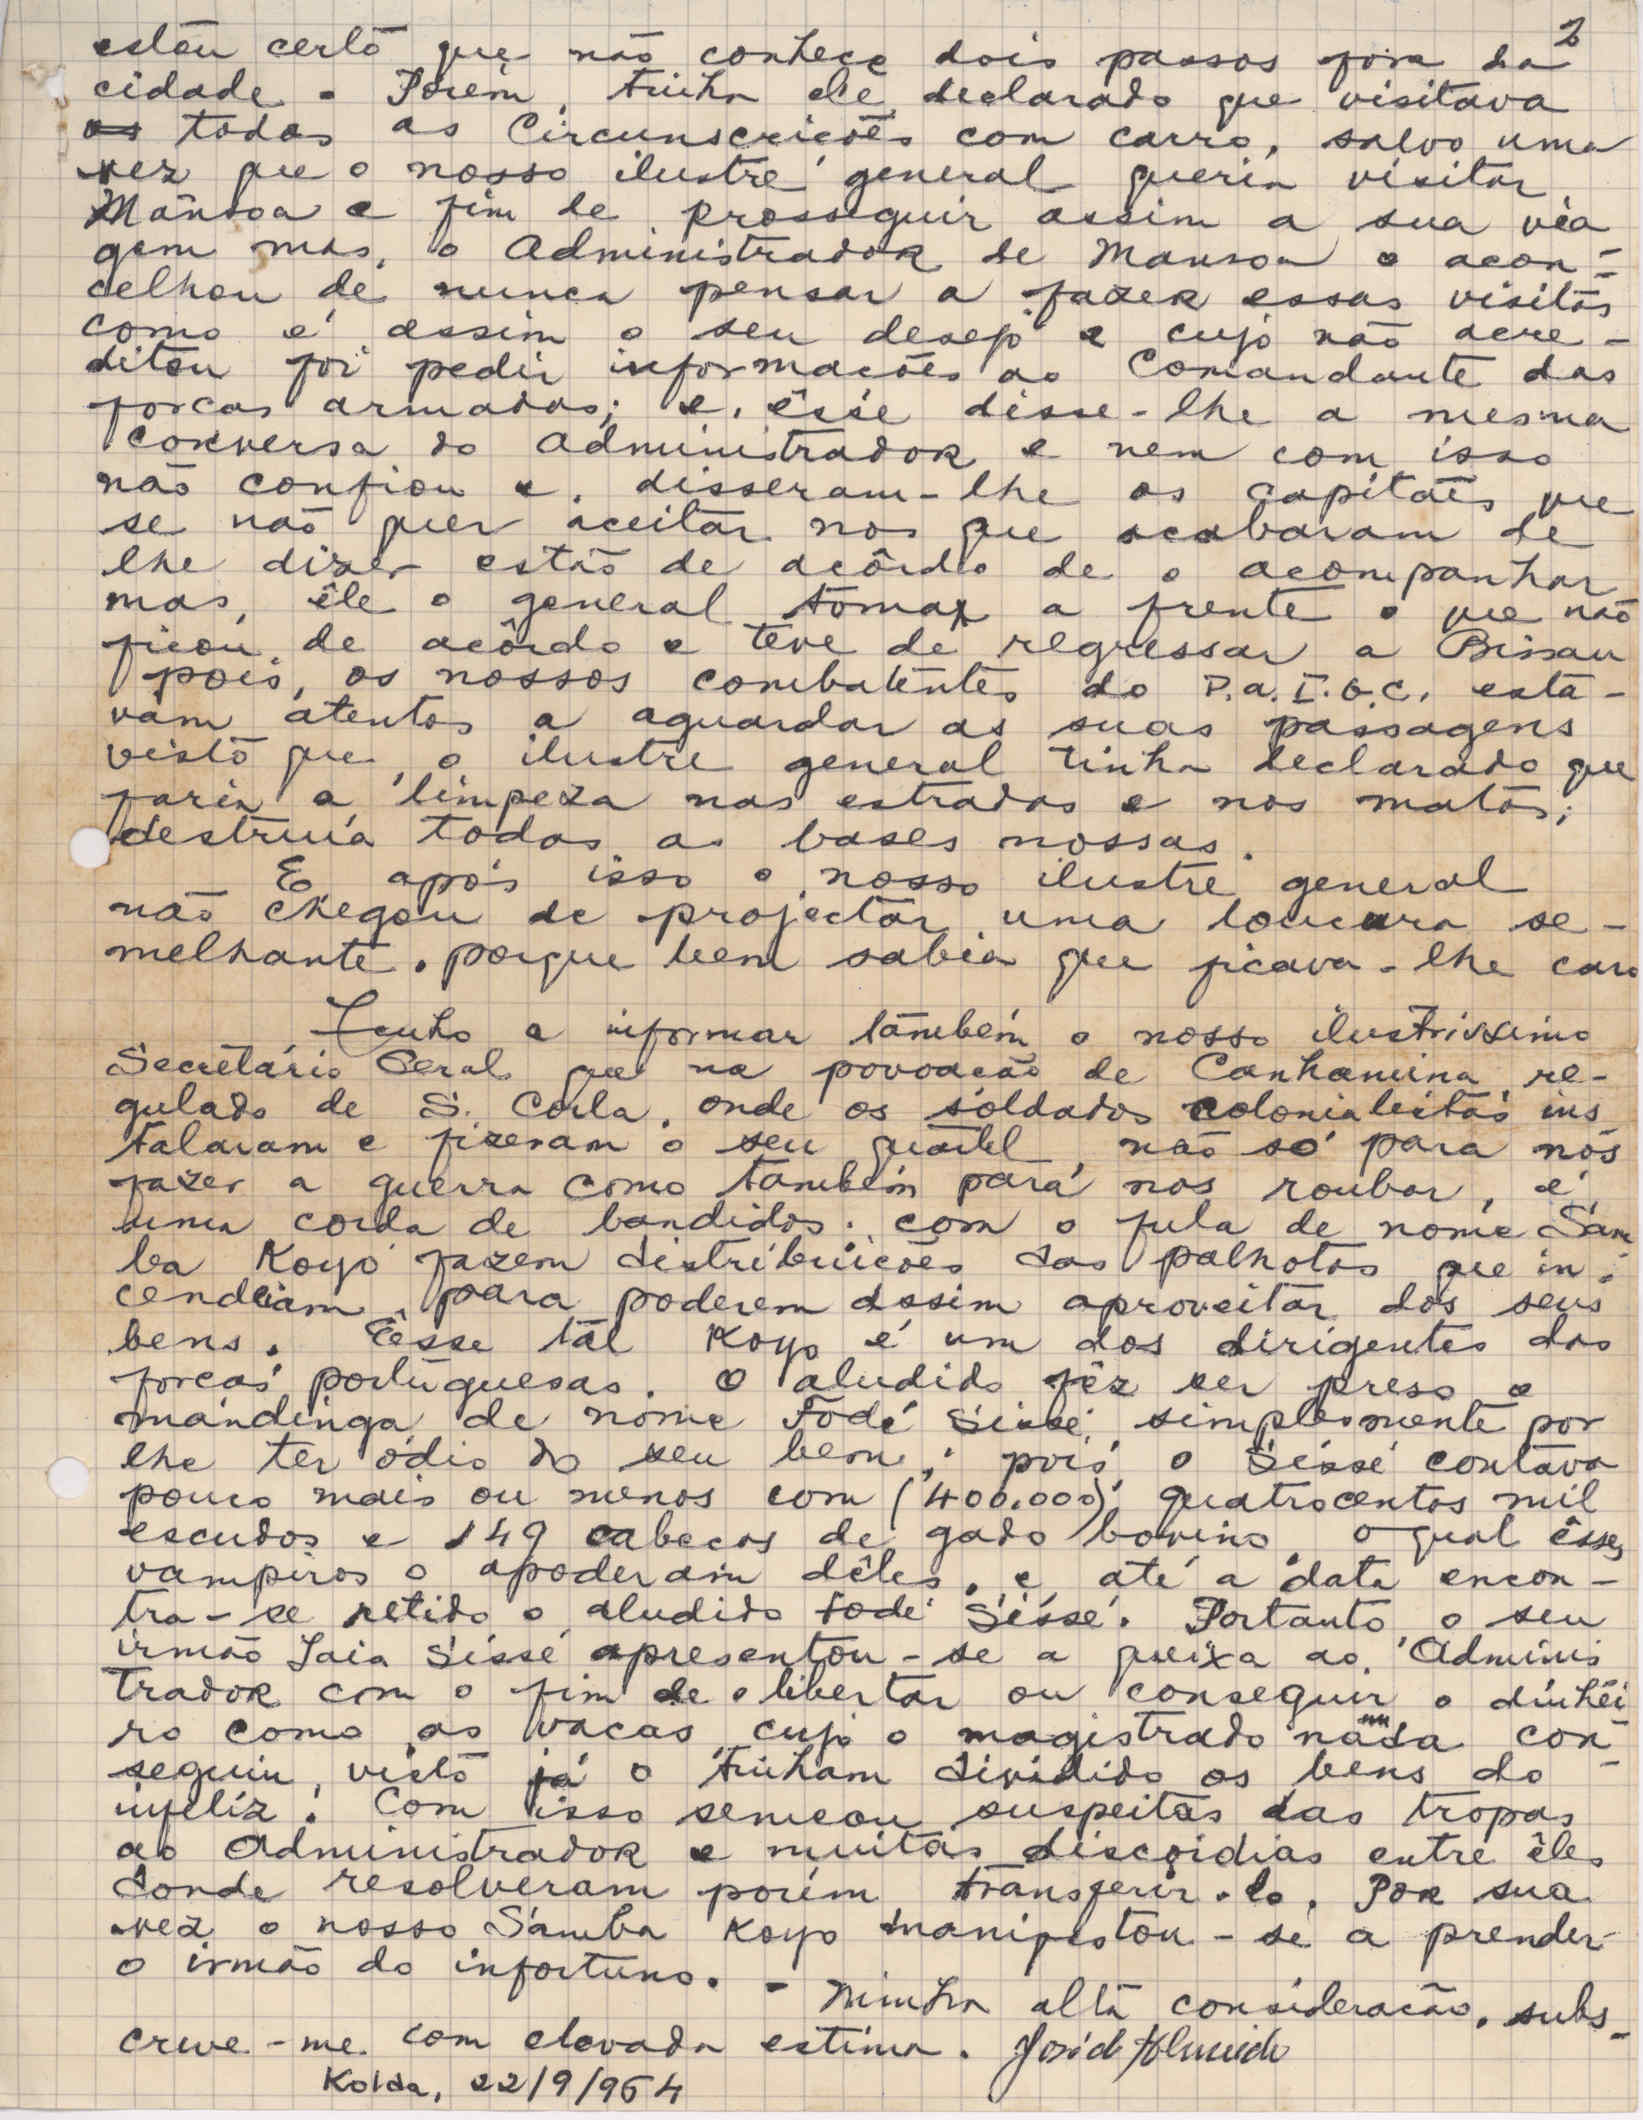 2
estou certo que não conhece dois passos fora da
cidade. Porém, tinha ele declarado que visitava
as todas as Circunscricões com carro, salvo uma
vez que o nosso ilustre general queria visitar
Mansoa e fim de prosseguir assim a sua via
gem mas, o Administrador de Mansoa o acon-
celhou de nunca pensar a fazer essas visitas
como é assim o seu desejo e cujo não acre-
ditou foi pedir informacões ao Comandante das
forcas armadas; e, êsse disse-lhe a mesma
conversa do administrador e nem com isso
não confiou e, disseram-lhe os capitães que
se não quer aceitar nos que acabaram de
lhe dizer estão de acôrdo de o acompanhar
mas, êle o general tomar a frente o que não
ficou de acôrdo e teve de regressar a Bissau
pois, os nossos combatentes do P.A.I.G.C. esta-
vam atentos a aguardar as suas passagens
visto que, o ilustre general tinha declarado que
faria a limpeza nas estradas e nos matos;
destruia todas as bases nossas.
E após isso o nosso ilustre general
não chegou de projectar uma loucura se-
melhante, porque bem sabia que ficava-lhe caro
Tenho a informar também o nosso ilustrissimo
Secretário Geral que na povoacão de Canhamina, re-
gulado de S. Corla, onde os soldados colonialistas ins
talaram e fizeram o seu quartel, não só para nos
fazer a guerra como também para nos roubar, é
uma corda de bandidos. com o fula de nome Sam
ba Koyo fazem distribuicões das palhotas que in-
cendeiam, para poderem assim aproveitar dos seus
bens. Êsse tal Koyo é um dos dirigentes das
forcas portuguesas. O aludido fêz ser preso o
mandinga de nome Fodé Sissé, simplesmente por
lhe ter ódio do seu bem; pois o Sissé contava
pouco mais ou menos com (400.000), quatrocentos mil
escudos e 149 cabecas de gado bovino, o qual êsses
vampiros o apoderam dêles, e até a data encon-
tra-se retido o aludido Fodé Sissé. Portanto o seu
irmão Iaia Sissé apresentou-se a queixa ao Adminis
trador com o fim de o libertar ou conseguir o dinhei
ro como as vacas cujo o magistrado nada con-
seguiu, visto já o tinham dividido os bens do
infeliz. Com isso semeou suspeitas das tropas
ao Administrador e muitas discordias entre êles
donde resolveram porém transferir-lo. Por sua
vez o nosso Samba Koyo manifestou-se a prender
o irmão do infortuno. - Minha alta consideracão, subs-
creve-me com elevada estima. José de Almeida
Kolda, 22/9/964